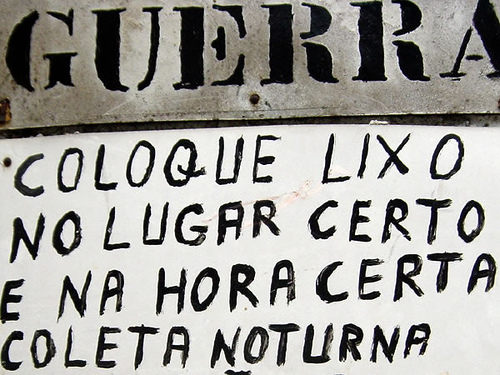 GUERRA
COLOQUE LIXO
NO LUGAR CERTO
E NA HORA CERTA
COLETA NOTURNA